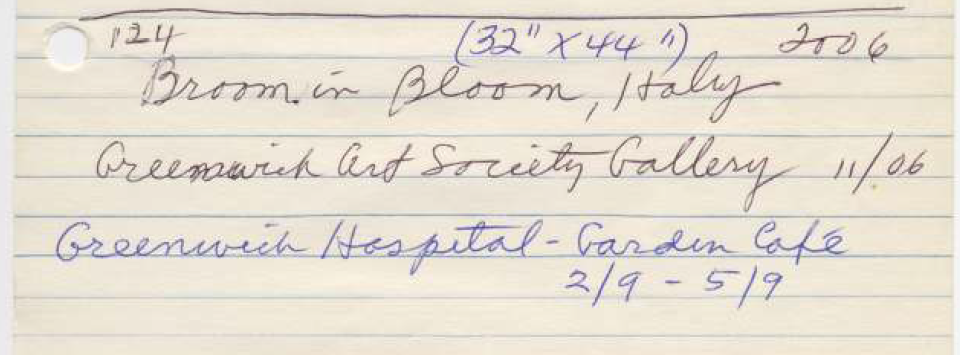 124 (32" X 44") 2006
Broom in Bloom, Italy
Greenwich Art Society Gallery 11/06
Greenwich Hospital - Garden Café
2/9 - 5/9